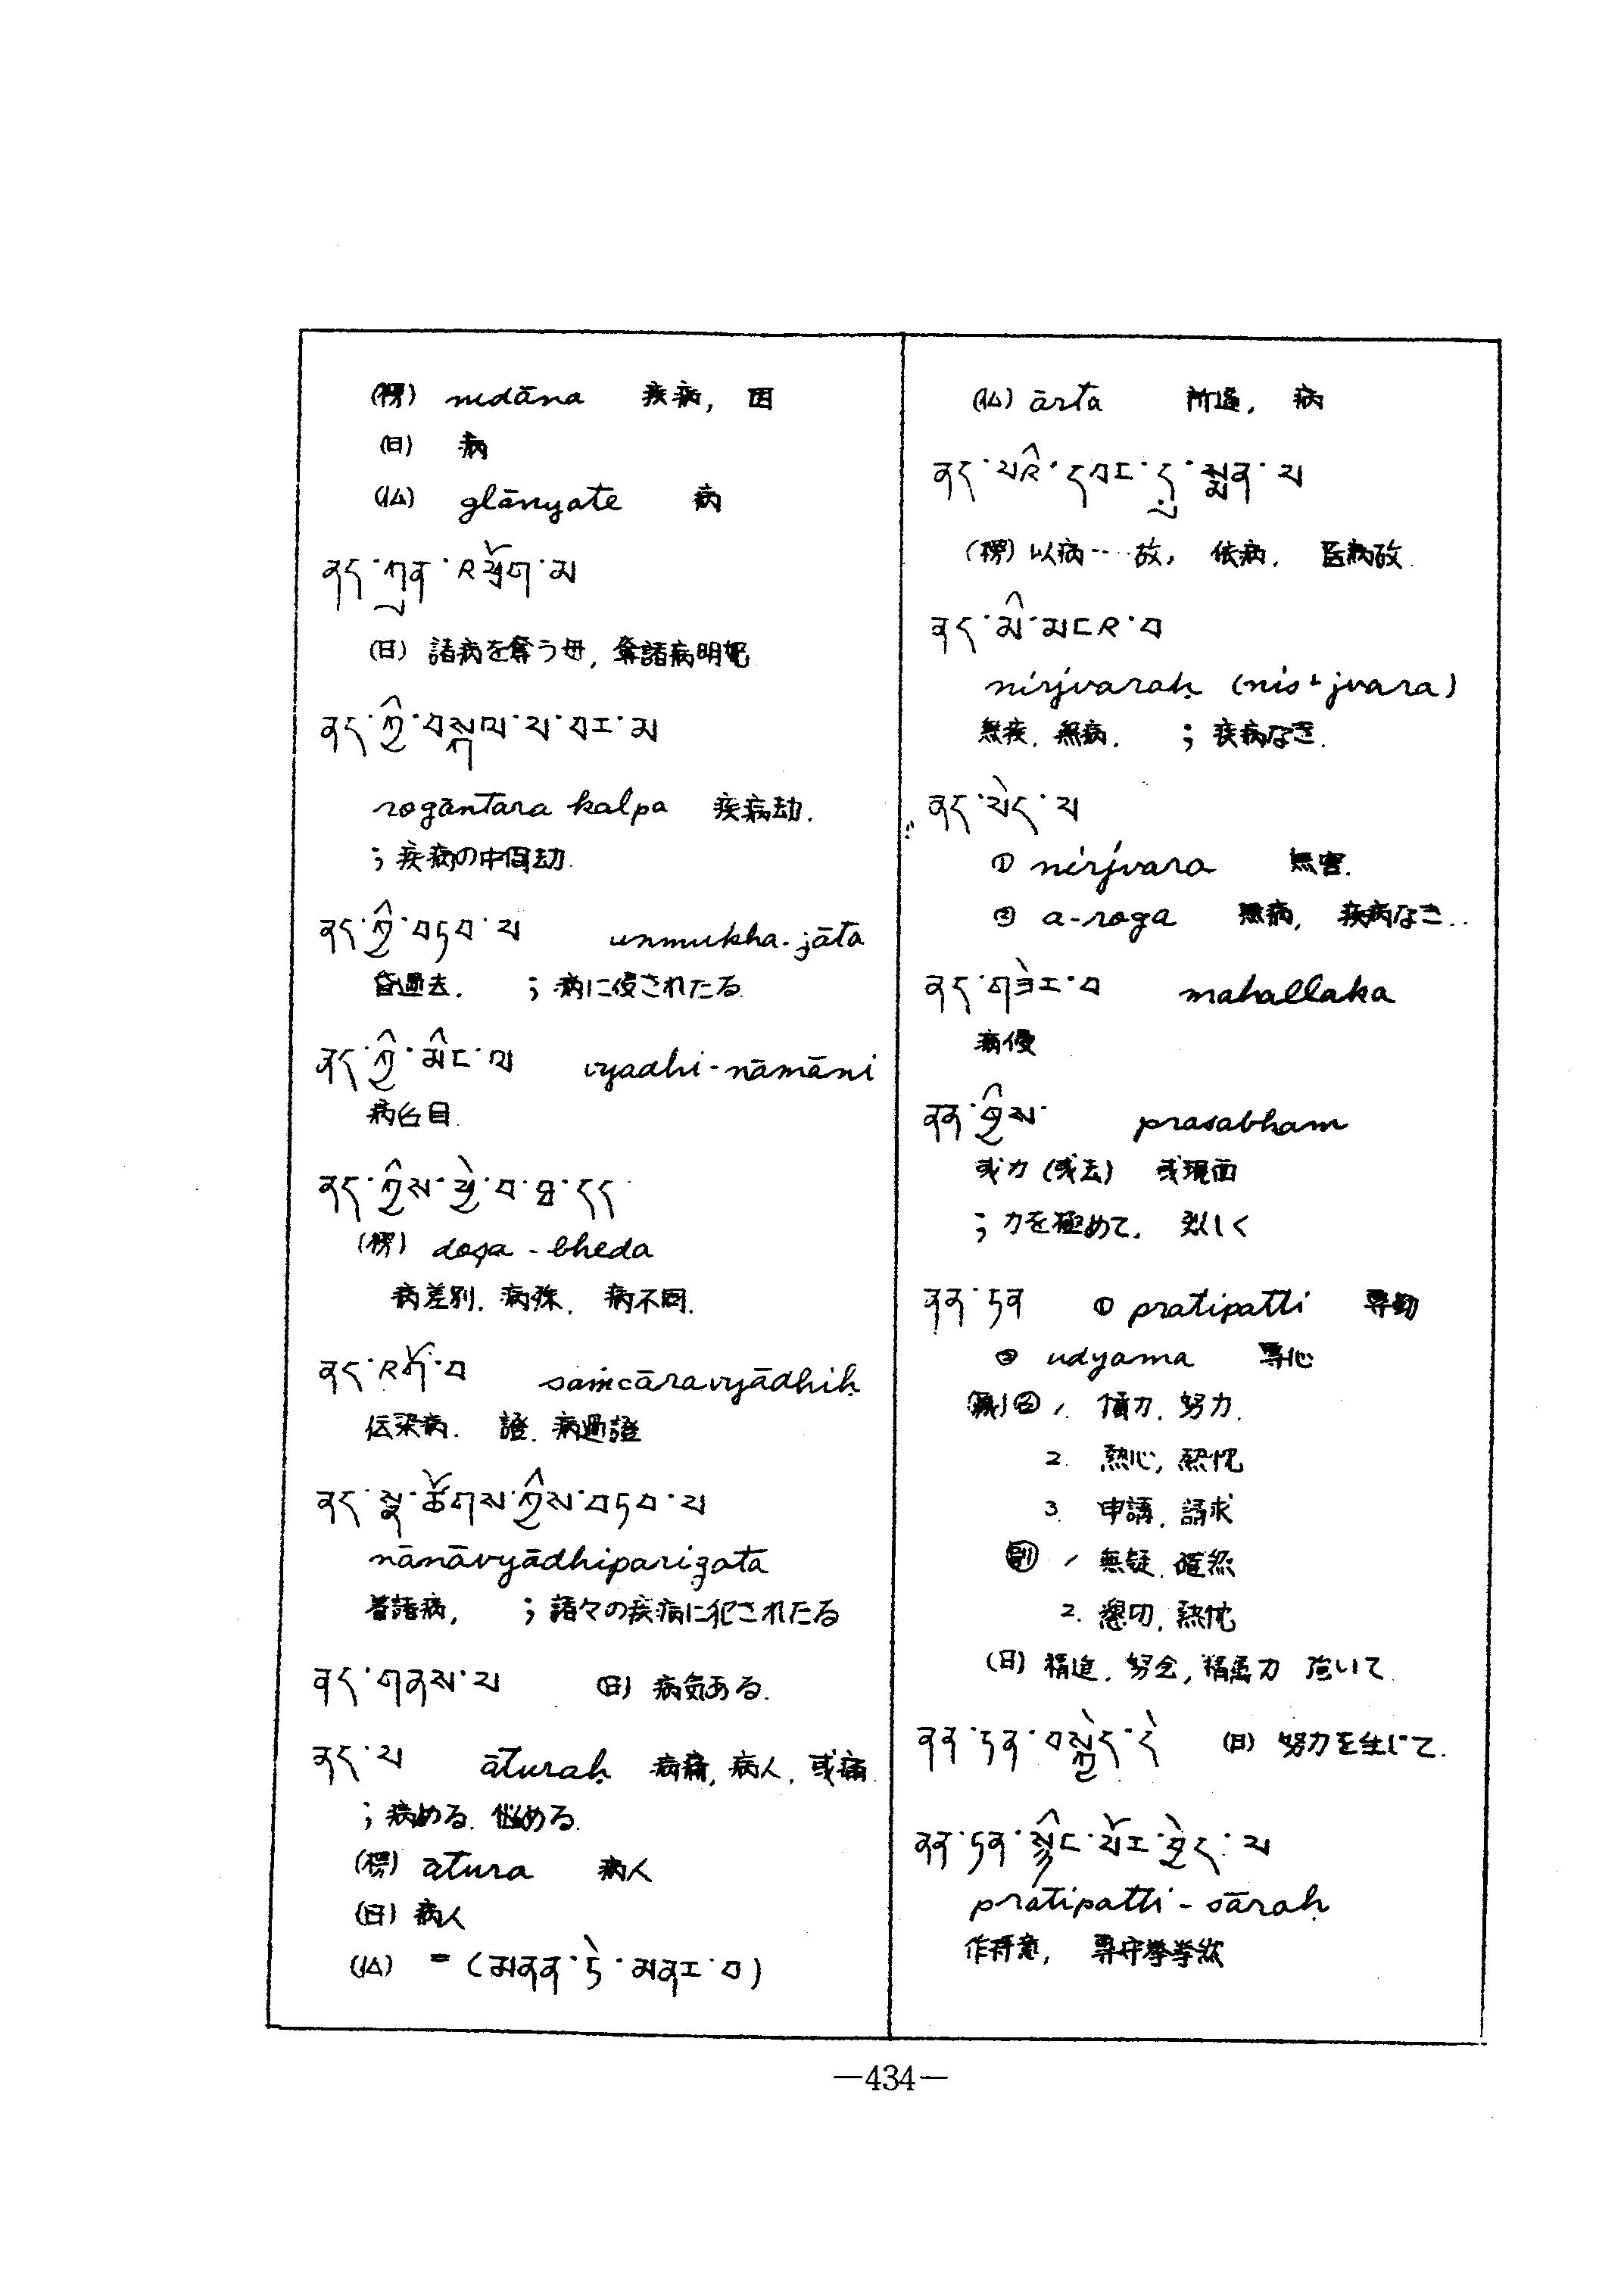 (楞) nidāna 疾病, 因
(日) 病
(仏) glānyate 病
ནད་ཀུན་འཕྲོག་མ
(日) 諸病を奪う母, 奪諸病明妃
ནད་ཀྱི་བསྐལ་པ་བར་མ
rogāntara kalpa 疾病劫.
; 疾病の中間劫.
ནད་ཀྱི་བཏབ་པ unmukha-jāta
皆過去. ; 病に侵されたる
ནད་ཀྱི་མིང་ལ vyadhi-nāmāni
病名目.
ནད་ཀྱིས་ཕྱེ་བ་ཐ་དད
(楞) doṣa-bheda
病差別. 病殊. 病不同.
ནད་འགོ་བ saṁcāravyādhiḥ
伝染病. 證. 病過證
ནད་སྣ་ཚོགས་ཀྱིས་བཏབ་པ
nānāvyādhiparigata
着諸病, ; 諸々の疾病に犯されたる
ནད་གནས་པ (日) 病気ある.
ནད་པ āturaḥ 病痛, 病人, 或痛
; 病める. 悩める.
(楞) ātura 病人
(日) 病人
(仏) = (མནན་ཏེ་མནར་བ)
(仏) ārta 所逼, 病
ནད་པའི་དབང་དུ་སྨན་པ
(楞) 以病……故, 依病, 医病故.
ནད་མི་མངའ་བ
nirjvaraḥ (nis+jvara)
無疾. 無病. ; 疾病なき.
ནད་མེད་པ
① nirjvara 無害.
② a-roga 無病, 疾病なき..
ནད་གཟེར་བ mahallaka
病優
ནན་གྱིས་ prasabham
或力 (或去) 或現面
; 力を極めて, 烈しく
ནན་ཏན ① pratipatti 専勤
② udyama 専心
名 1. 傾力. 努力.
2. 熱心, 熱忱
3. 申請. 請求
副 1 無疑. 確然
2. 懇切, 熱忱
(日) 精進. 努念, 精進力 強いて
ནན་ཏན་བསྐྱེད་དེ (日) 努力を生じて.
ནན་ཏན་སྙིང་པོར་བྱེད་པ
pratipatti-sāraḥ
作存意, 専守拳拳然
—434—